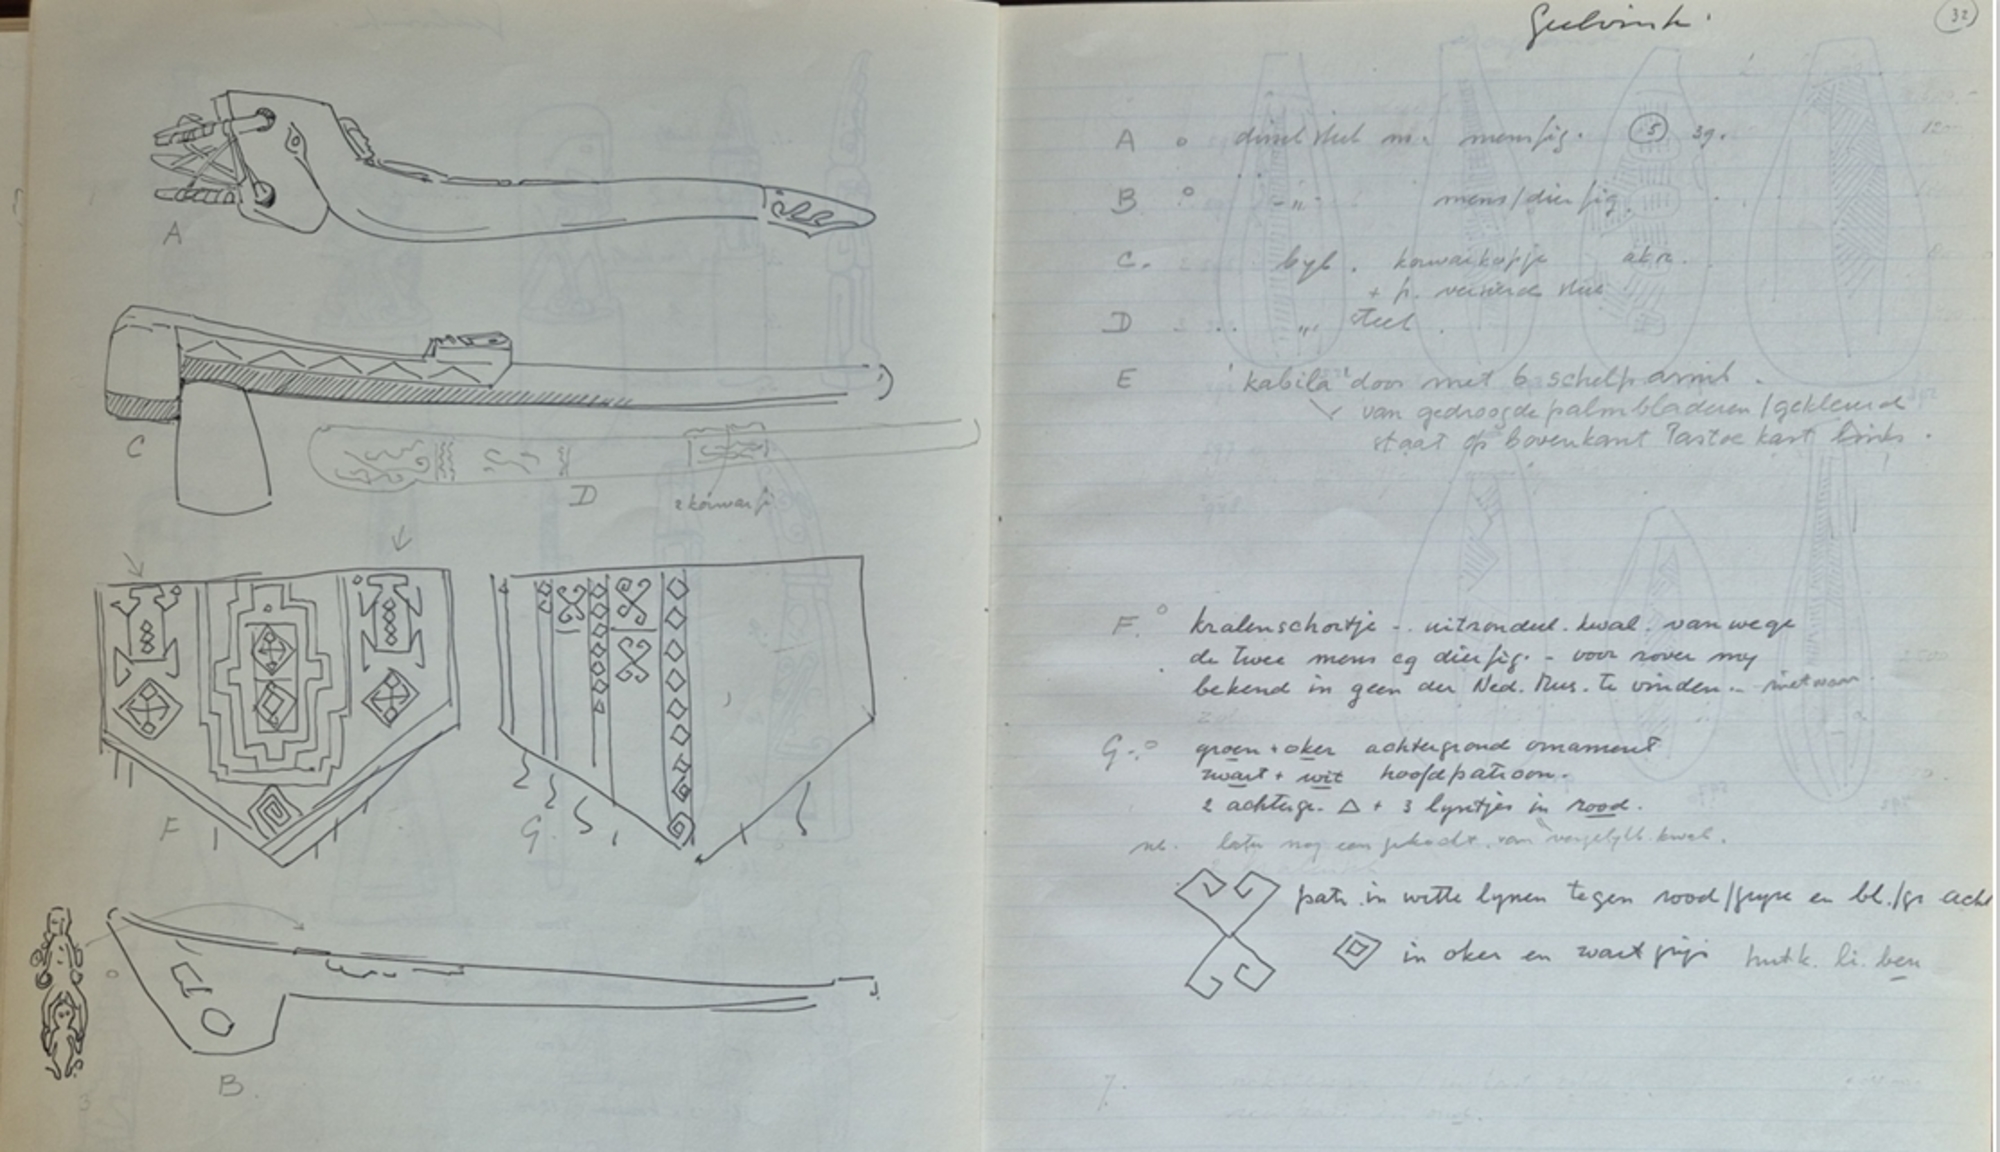 A
C
D
2 korwarfj
F
G.
B.
Geelvink.
32
A dissel steel m. mensfig. 5 39.
B -"- mens/dierfig.
C. byl. korwarkopje
+ p. versierde steel
D "" steel.
E 'kabila' doos met 6 schelp armb.
van gedroogde palmbladeren / gekleurd
staat op bovenkant Pastoe kast links.
F. kralenschortje - uitzonderl. kwal. vanwege
de twee mens cq dierfig. - voor zover my
bekend in geen der Ned. Mus. te vinden.
G. groen + oker achtergrond ornament
zwart + wit hoofdpatroon.
2 achtergr. △ + 3 lyntjes in rood.
nb. later nog een gekocht, van vergelykb. kwal.
patr. in witte lynen tegen rood/gryze en bl./gr acht
in oker en zwart grijs